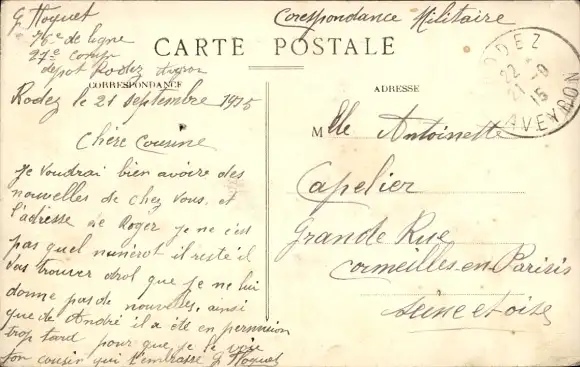 G Hoquet
76e de ligne
27e Comp
depot Rodez Aveyron
Corespondance Militaire
CARTE POSTALE
CORRESPONDANCE
ADRESSE
RODEZ
22
21-9
15
AVEYRON
Rodez le 21 septembre 1915
Chère Cousine
Je voudrai bien avoire des
nouvelles de chez vous, et
l'adresse de Roger je ne c'est
pas quel numérot il reste il
vas trouver drol que je ne lui
donne pas de nouvelles, ainsi
que de André il a été en permission
trop tard pour que je le voie
ton cousin qui t'embrasse G Hoquet
Mlle Antoinette
Capelier
Grande Rue
Cormeilles en Parisis
Seine et oise